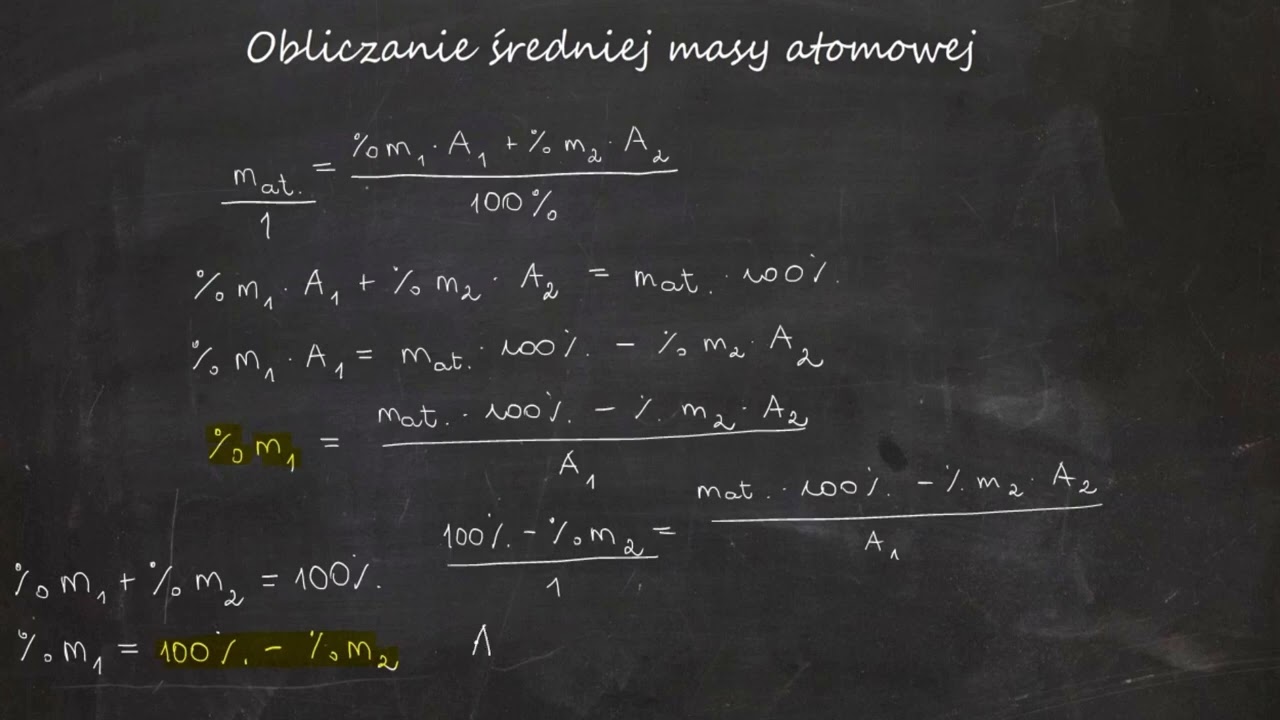 Obliczanie średniej masy atomowej
mat. / 1 = (%m₁ · A₁ + %m₂ · A₂) / 100%
%m₁ · A₁ + %m₂ · A₂ = mat. · 100%.
%m₁ · A₁ = mat. · 100%. - %m₂ · A₂
%m₁ = (mat. · 100%. - %m₂ · A₂) / A₁
(100%. - %m₂) / 1 = (mat. · 100%. - %m₂ · A₂) / A₁
%m₁ + %m₂ = 100%.
%m₁ = 100%. - %m₂